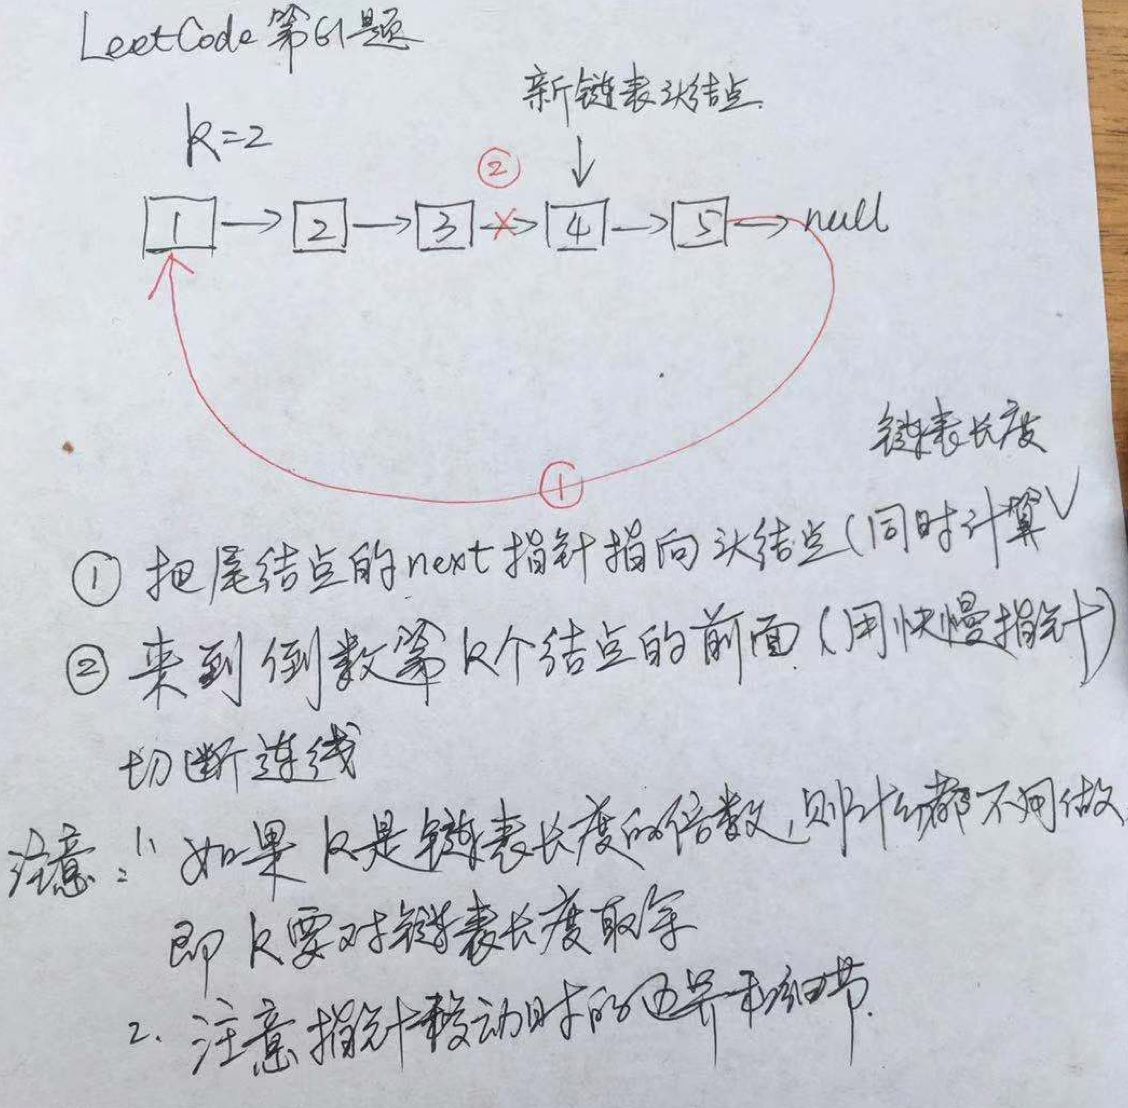 LeetCode第61题
新链表头结点.
k=2
②
1 → 2 → 3 → 4 → 5 → null
①
链表长度
① 把尾结点的next指针指向头结点(同时计算√
② 来到倒数第k个结点的前面(用快慢指针)
切断连线
注意: 1、如果k是链表长度的倍数,则什么都不用做
即k要对链表长度取余
2. 注意指针移动时的边界和细节.